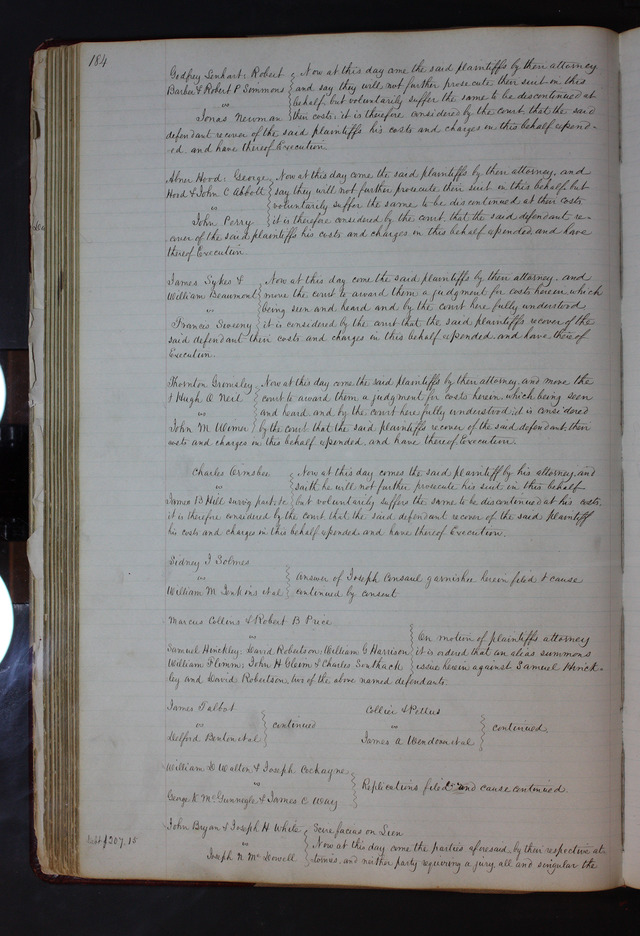 184
Godfrey Lenhart, Robert } Now at this day came the said plaintiffs by their attorney
Barber & Robert P Simmons } and say they will not further prosecute their suit in this
vs } behalf, but voluntarily suffer the same to be discontinued at
Jonas Newman } their costs, it is therefore considered by the court, that the said
defendant recover of the said plaintiffs his costs and charges in this behalf expend-
ed, and have thereof Execution
Abner Hood, George } Now at this day come the said plaintiffs by their attorney, and
Hood & John C Abbott } say they will not further prosecute their suit in this behalf but
vs } voluntarily suffer the same to be discontinued at their costs
John Perry } it is therefore considered by the court, that the said defendant re-
cover of the said plaintiffs his costs and charges in this behalf expended, and have
thereof Execution
James Sykes & } Now at this day come the said plaintiffs by their attorney, and
William Beaumont } move the court to award them a judgment for costs herein, which
vs } being seen and heard and by the court here fully understood
Frances } it is considered by the court that the said plaintiffs recover of the
said defendant their costs and charges in this behalf expended, and have thereof
Execution.
Thornton Grimsley } Now at this day come the said plaintiffs by their attorney, and move the
& Hugh O Neil } court to award them a judgment for costs herein, which being seen
vs } and heard, and by the court here fully understood, it is considered
John M Wimer } by the court that the said plaintiffs recover of the said defendant, their
costs and charges in this behalf expended, and have thereof Execution.
Charles Ormsbee } Now at this day comes the said plaintiff by his attorney, and
vs } saith he will not further prosecute his suit in this behalf
James B Hill survg part. &c } but voluntarily suffers the same to be discontinued at his costs,
it is therefore considered by the court that the said defendant recover of the said plaintiff
his costs and charges in this behalf expended and have thereof Execution.
Sidney J
vs } answer of Joseph garnishee herein filed & cause
William M Jenkins et al } continued by consent
Marcus Collins & Robert B Price
vs } On motion of plaintiffs attorney
Samuel Hinckley, David Robertson, William G Harrison } it is ordered that an alias summons
William Flimm, John H & Charles Southack } issue herein against Samuel Hinck-
ley and David Robertson, two of the above named defendants.
James Talbot
vs } continued
Wolford Benton et al
Collier & Pettus
vs } continued.
James A et al
William D Walton & Joseph Cockayne
vs } Replications filed and cause continued.
George K McGunnegle & James C Way
John Bryan & Joseph H White } Scire facias on Lien
vs } Now at this day come the parties aforesaid, by their respective at-
Debt $207.15
Joseph N McDowell } tornies, and neither party requiring a jury, all and singular the